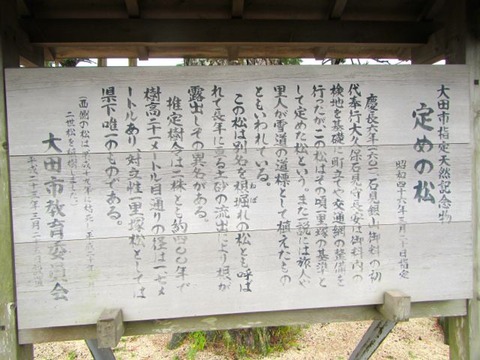 大田市指定天然記念物
定めの松
昭和四十六年 月 日指定
慶長六年(一六〇一)石見銀山御料の初
代奉行大久保石見守長安は御料内の
検地を基礎に町立てや交通網の整備を
行ったが、この松はその頃一里塚の基準と
して定めた松という。また一説には旅人や
里人が雪道の道標として植えたもの
ともいわれている。
この松は別名を根堀れの松とも呼ば
れて長年による土砂の流出により根が
露出しその異名がある。
推定樹令は二株とも約四〇〇年が
樹高二十一メートル目通りの径は一・七メ
ートルあり、対立性一里塚松としては
県下唯一のものである。
(西側の松は平成十 年に枯死、平成二十
二世松を
大田市教育委員会
平成二十 年三月二十